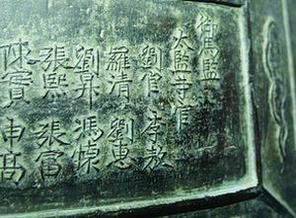 御馬監
太監等官
劉 李
羅清 劉惠
劉昇 馮
張熙 張富
陳寶 申高